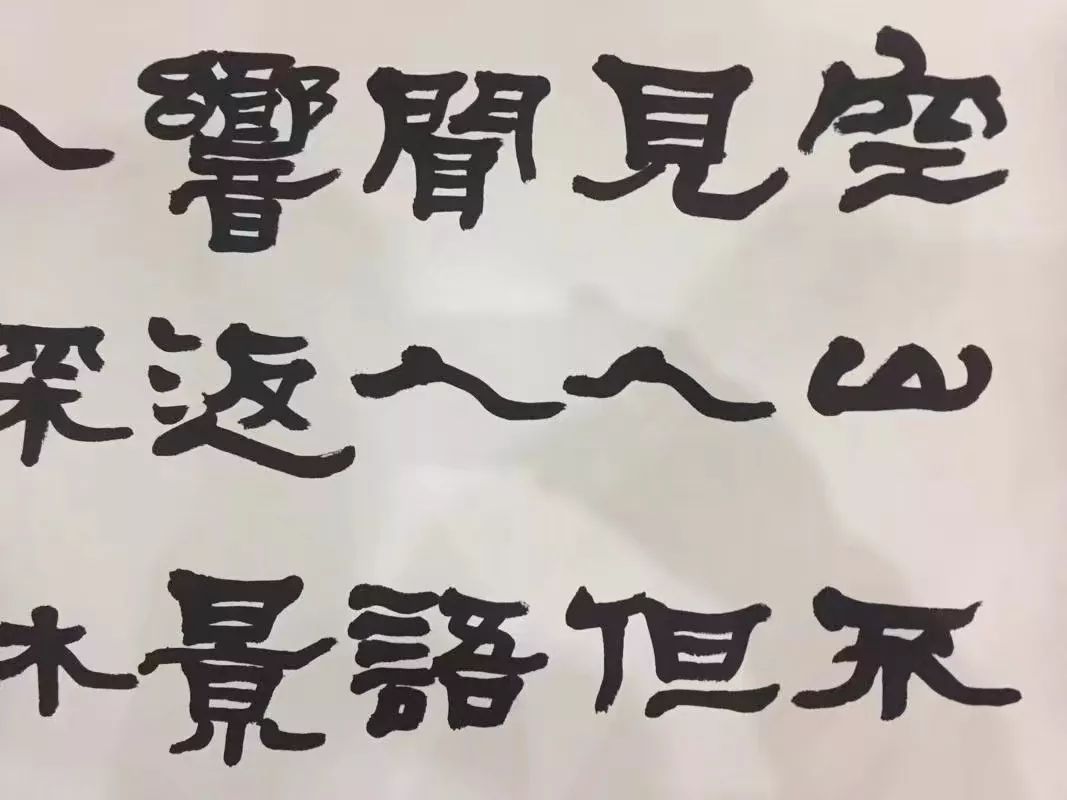 空山不
見人但
聞人語
響返景
深林